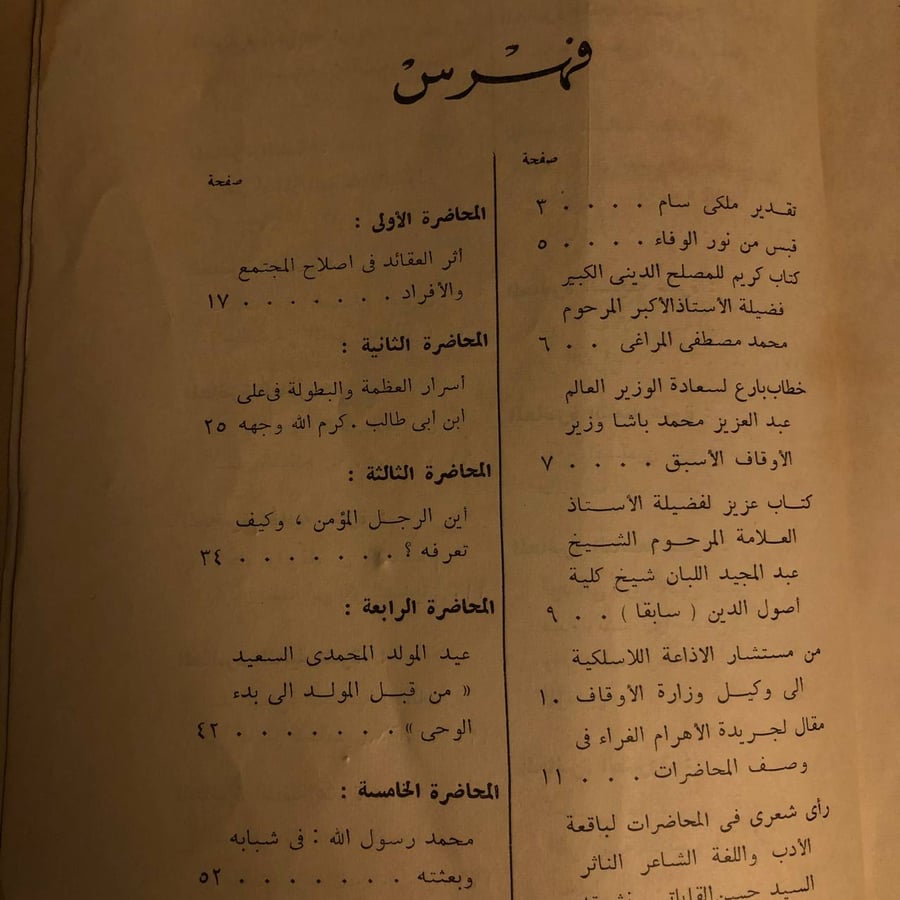 فهرس
صفحة
تقدير ملكى سام . . . . ٣
قبس من نور الوفاء . . . . ٥
كتاب كريم للمصلح الدينى الكبير
فضيلة الأستاذ الأكبر المرحوم
محمد مصطفى المراغى . . ٦
خطاب بارع لسعادة الوزير العالم
عبد العزيز محمد باشا وزير
الأوقاف الأسبق . . . . ٧
كتاب عزيز لفضيلة الأستاذ
العلامة المرحوم الشيخ
عبد المجيد اللبان شيخ كلية
اصول الدين ( سابقا ) . . ٩
من مستشار الاذاعة اللاسلكية
الى وكيل وزارة الأوقاف ١٠
مقال لجريدة الأهرام الغراء فى
وصف المحاضرات . . . ١١
رأى شعرى فى المحاضرات لباقعة
الأدب واللغة الشاعر الناثر
السيد حسن القاياتى
صفحة
المحاضرة الأولى :
أثر العقائد فى اصلاح المجتمع
والأفراد . . . . . . . ١٧
المحاضرة الثانية :
أسرار العظمة والبطولة فى على
ابن أبى طالب . كرم الله وجهه ٢٥
المحاضرة الثالثة :
أين الرجل المؤمن ، وكيف
تعرفه ؟ . . . . . . . ٣٤
المحاضرة الرابعة :
عيد المولد المحمدى السعيد
« من قبل المولد الى بدء
الوحى » . . . . . . . ٤٢
المحاضرة الخامسة :
محمد رسول الله : فى شبابه
وبعثته . . . . . . . ٥٢